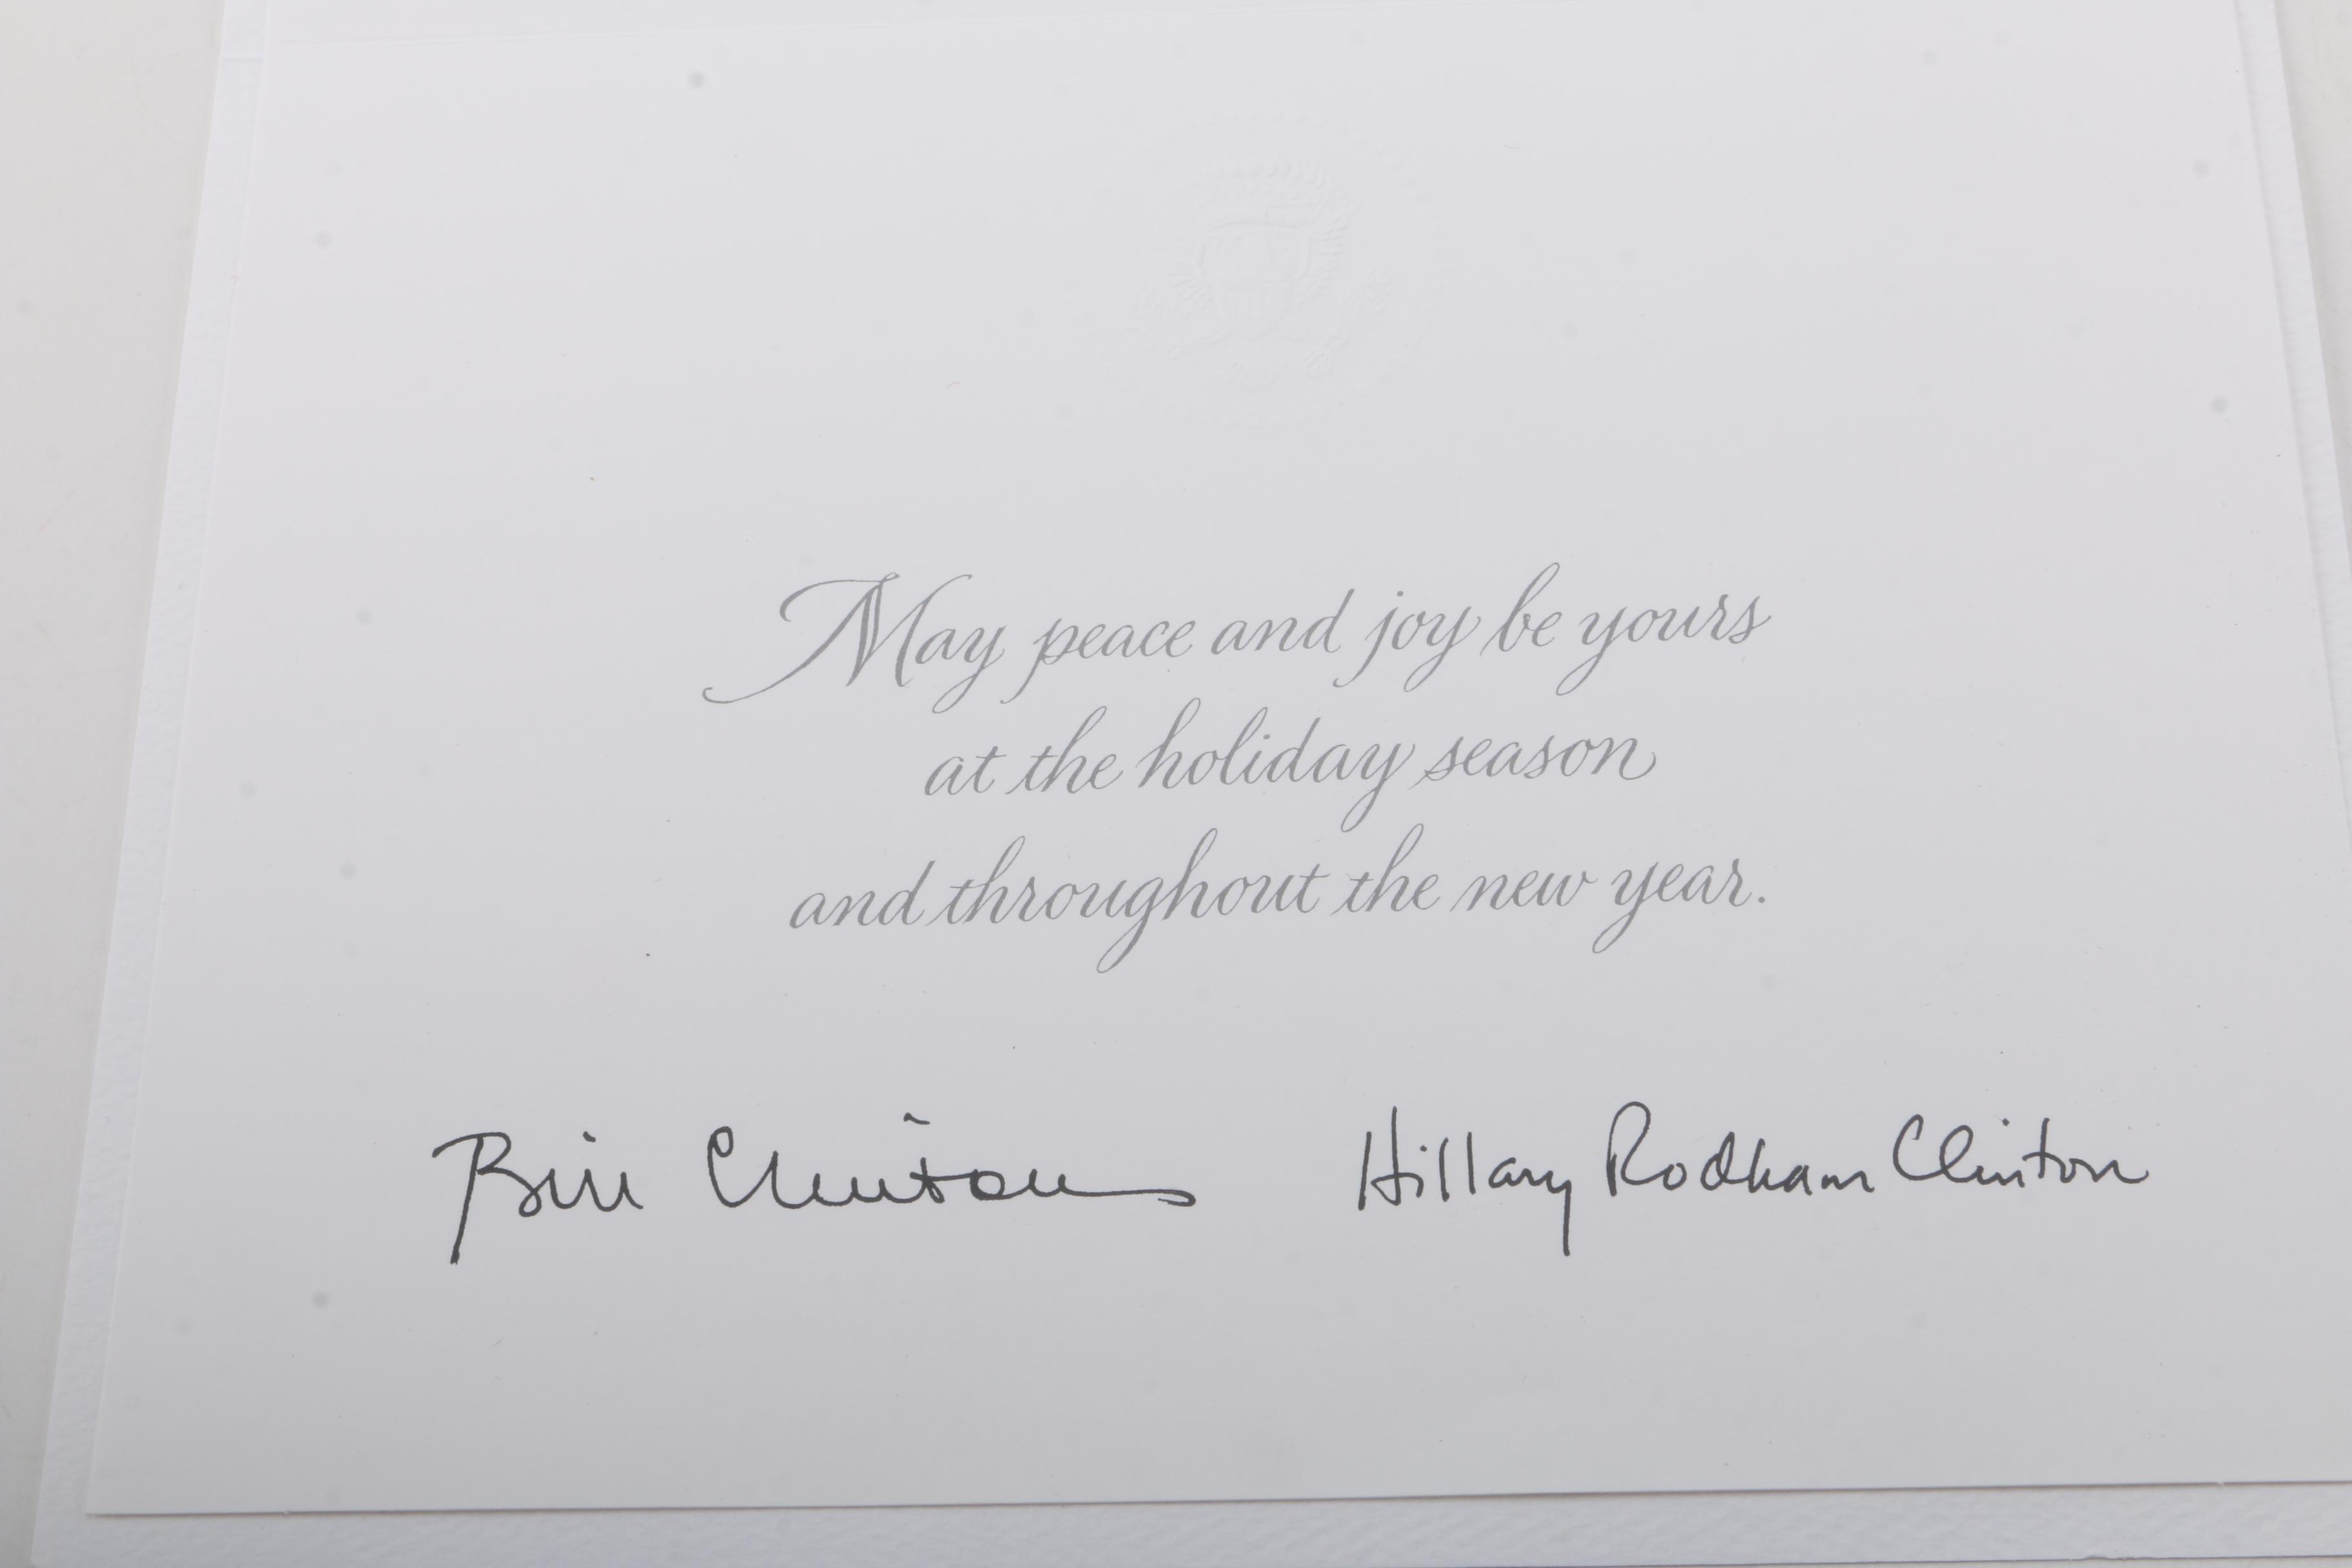 May peace and joy be yours
at the holiday season
and throughout the new year.
Bill Clinton Hillary Rodham Clinton